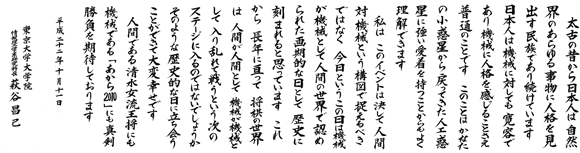 太古の昔から日本人は自然
界のあらゆる事物に人格を見
出す民族であり続けています
日本人は機械に対しても寛容で
あり機械に人格を感じることさえ
普通のことです このことはかなた
の小惑星から戻ってきた人工惑
星に強く愛着を持つことからもよく
理解できます
私は このイベントは決して人間
対機械という構図で捉えるべき
ではなく 今日というこの日は機械
が機械として人間の世界で認め
られた画期的な日として 歴史に
刻まれると思っています これ
から 長年に亘って 将棋の世界
は 人間が人間として 機械が機械と
して入り乱れて戦うという次の
ステージに入るのではないでしょうか
そのような歴史的な日に立ち会う
ことができて大変幸せです
人間である清水女流王将にも
機械である「あから2010」にも真剣
勝負を期待しております
平成二十二年十月十一日
東京大学大学院
情報理工学系研究科教授 萩谷昌己